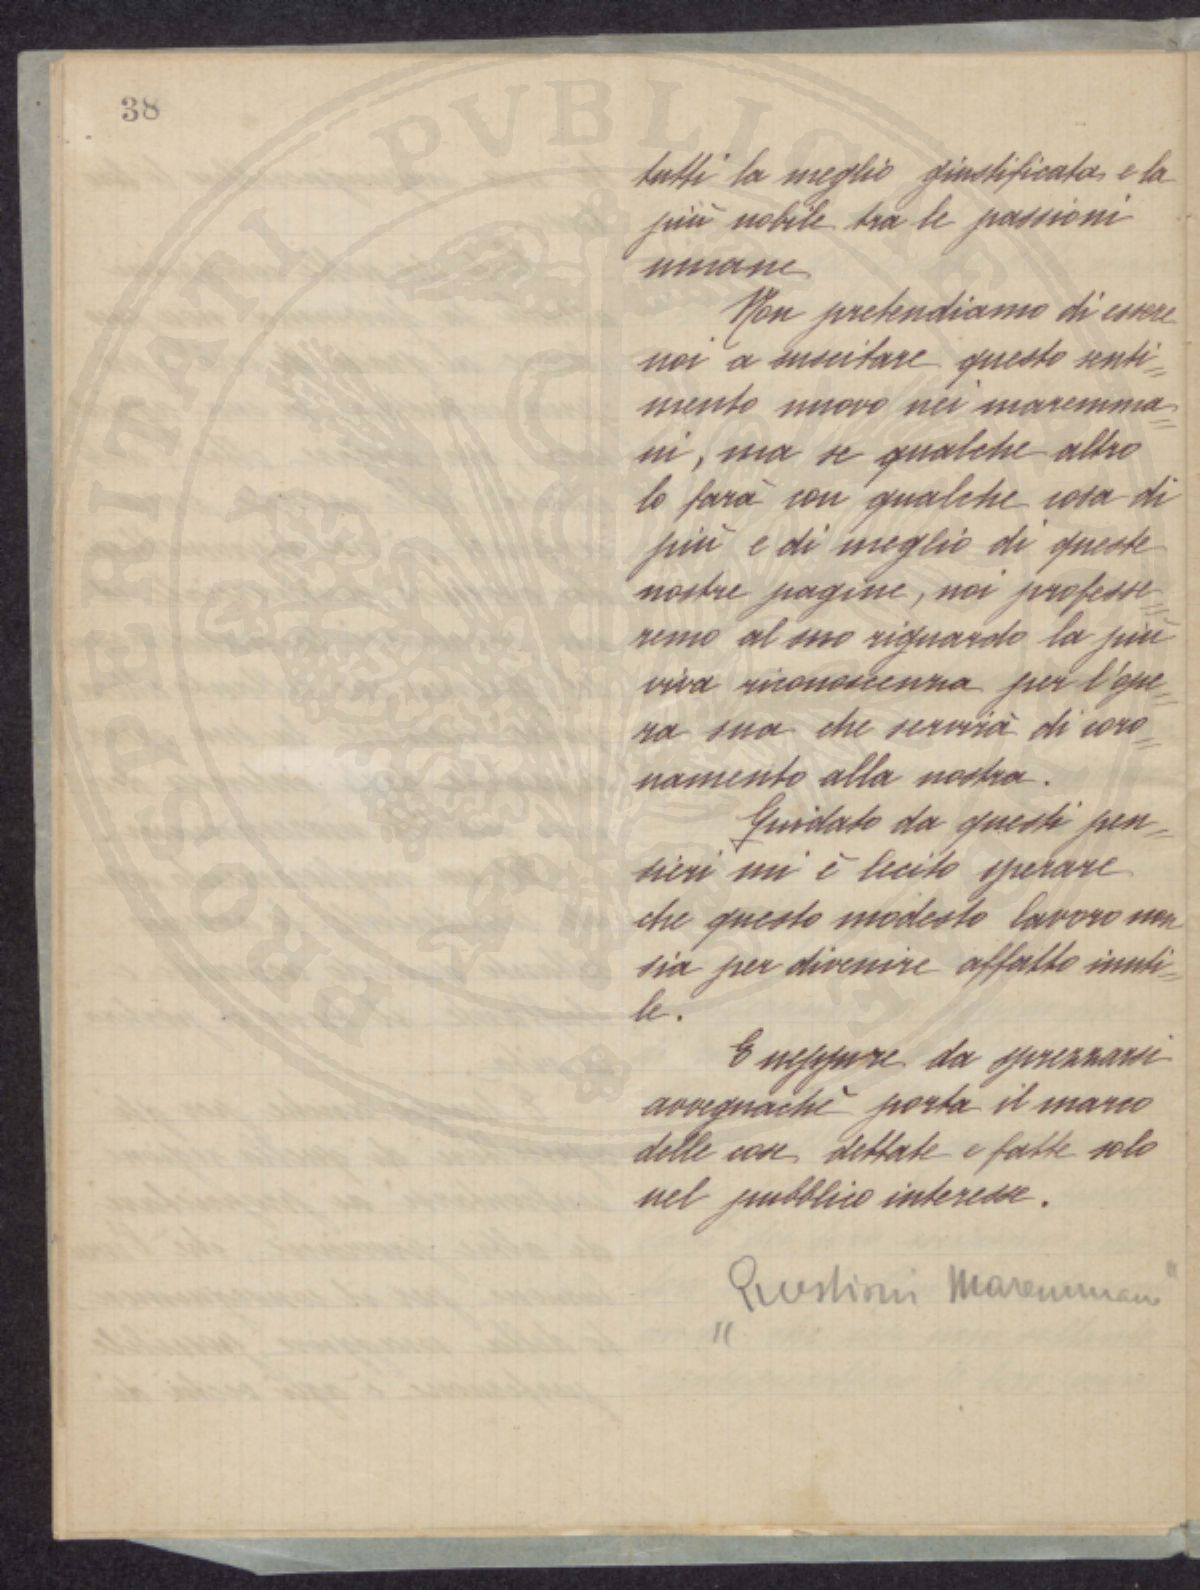 38
tutti la meglio giustificata e la
più nobile tra le passioni
umane
Non pretendiamo di essere
noi a suscitare questo senti=
mento nuovo nei maremma=
ni, ma se qualche altro
lo farà con qualche cosa di
più e di meglio di queste
nostre pagine, noi professe=
remo al suo riguardo la più
viva riconoscenza per l'ope=
ra sua che servirà di coro=
namento alla nostra.
Guidato da questi pen=
sieri mi è lecito sperare
che questo modesto lavoro non
sia per divenire affatto inuti=
le.
E neppure da sprezzarsi
avvegnachè porta il marco
delle cose dettate e fatte solo
nel pubblico interesse.
"Questioni Maremmane"